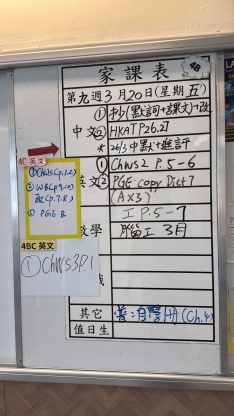 家課表
第九週3月20日(星期五)
中文
①抄(默詞+課文)+改
② HKAT P.26.27
* 26/3 中默+進評
英文
① Ch WS 2 P.5-6
② PGE copy Dict 7
(A×3)
數學
工 P.5-7
腦工 3月
其它
普:自學冊(Ch.4)
值日生
1C 英文
① Ch WS(p.1,2)
② WB(p.9,10)
p.7,8)
③ PGE B
4BC 英文
① Ch WS 3 P.1